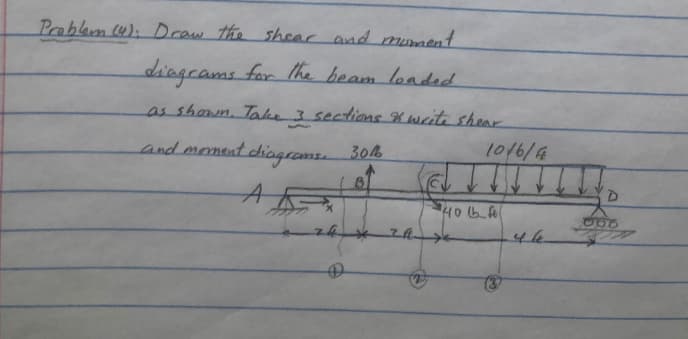 Problem (4): Draw the shear and moment
diagrams for the beam loaded
as shown. Take 3 sections & write shear
and moment diagrams.
30 lb
10 lb/ft
A
B
C
D
x
40 lb-ft
2 ft
2 ft
4 ft
1
2
3